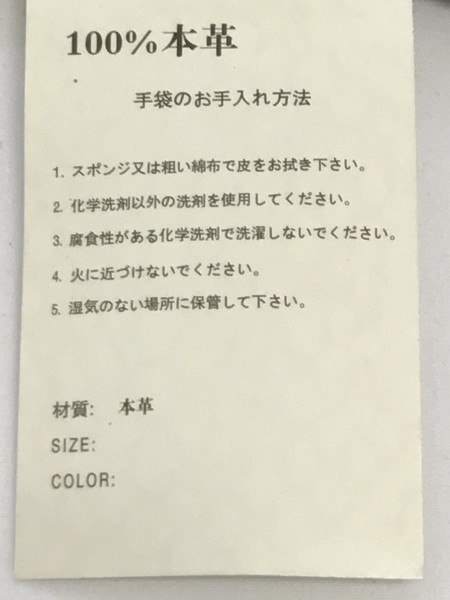 100%本革
手袋のお手入れ方法
1. スポンジ又は粗い綿布で皮をお拭き下さい。
2. 化学洗剤以外の洗剤を使用してください。
3. 腐食性がある化学洗剤で洗濯しないでください。
4. 火に近づけないでください。
5. 湿気のない場所に保管して下さい。
材質: 本革
SIZE:
COLOR: